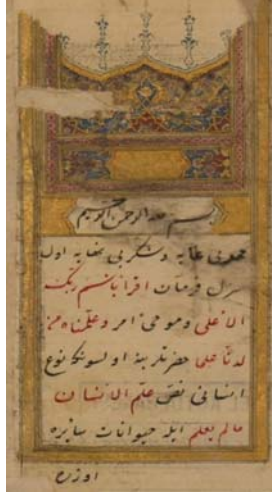 بسم الله الرحمن الرحيم
حمد بى غايه و شكر بى نهايه اول
منزل فرمان اقرا باسم ربك
الاعلى و مومى امر و علمناه من
لدنا علما حضرتلرينه اولسونكه نوع
انسانى نص علم الانسان
مالم يعلم ايله حيوانات سايره
اوزره